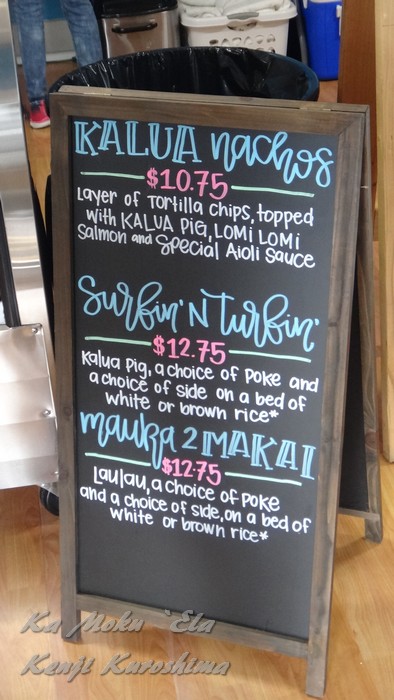 KALUA nachos
$10.75
Layer of Tortilla Chips, topped
with KALUA PIG, LOMI LOMI
Salmon and Special Aioli Sauce
Surfin' N Turfin'
$12.75
Kalua Pig, a choice of Poke and
a choice of side on a bed of
white or brown rice*
mauka 2 MAKAI
$12.75
Laulau, a choice of Poke
and a choice of side, on a bed of
white or brown rice*
Ka Moku `Ela
Kenji Kuroshima